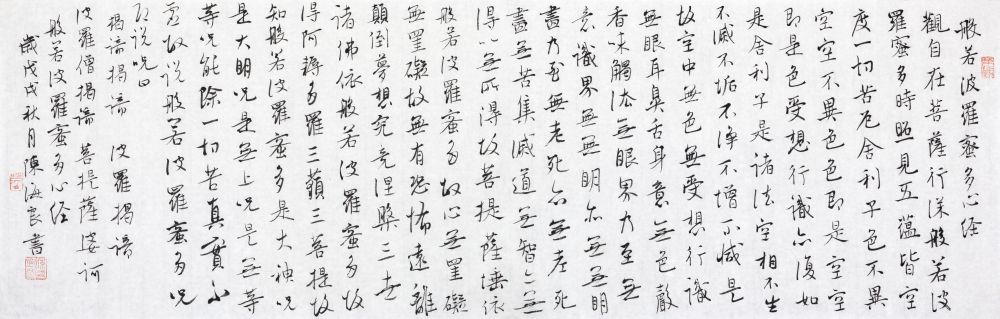 般若波羅蜜多心经
觀自在菩薩行深般若波
羅蜜多時照見五蕴皆空
度一切苦厄舍利子色不異
空空不異色色即是空空
即是色受想行識亦復如
是舍利子是諸法空相不生
不滅不垢不净不增不减是
故空中無色無受想行識
無眼耳鼻舌身意無色聲
香味觸法無眼界乃至無
意識界無無明亦無無明
盡乃至無老死亦無老死
盡無苦集滅道無智亦無
得以無所得故菩提薩埵依
般若波羅蜜多故心無罣礙
無罣礙故無有恐怖遠離
顛倒夢想究竟涅槃三世
諸佛依般若波羅蜜多故
得阿耨多羅三藐三菩提故
知般若波羅蜜多是大神咒
是大明咒是無上咒是無等
等咒能除一切苦真實不
虚故說般若波羅蜜多咒
即說咒曰
揭諦揭諦 波羅揭諦
波羅僧揭諦 菩提薩婆訶
般若波羅蜜多心经
歲戊戌秋月陳海良書